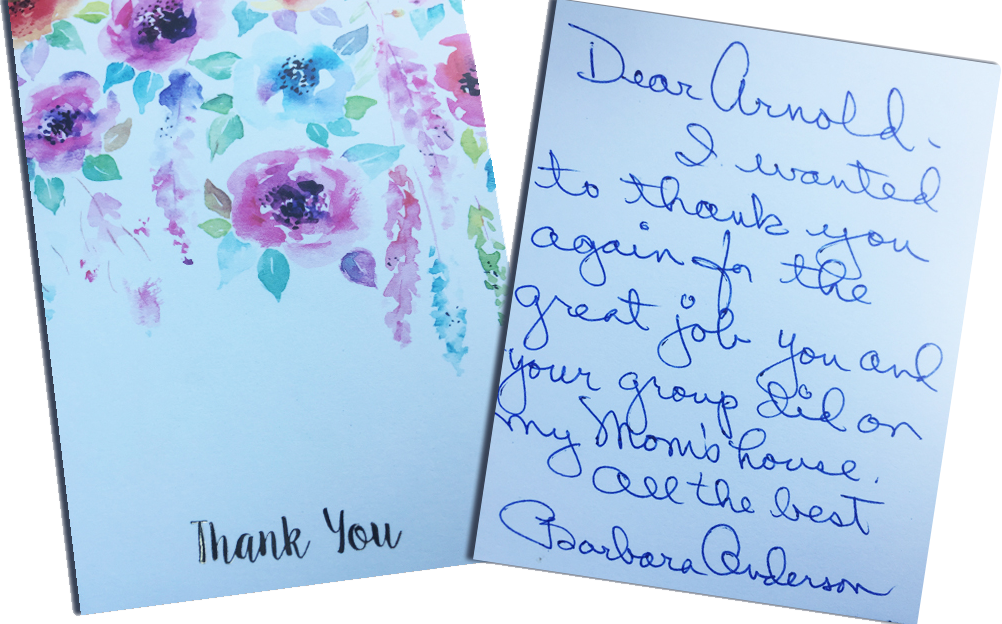 Thank You
Dear Arnold -
I wanted
to thank you
again for the
great job you and
your group did on
my Mom's house.
All the best
Barbara Anderson